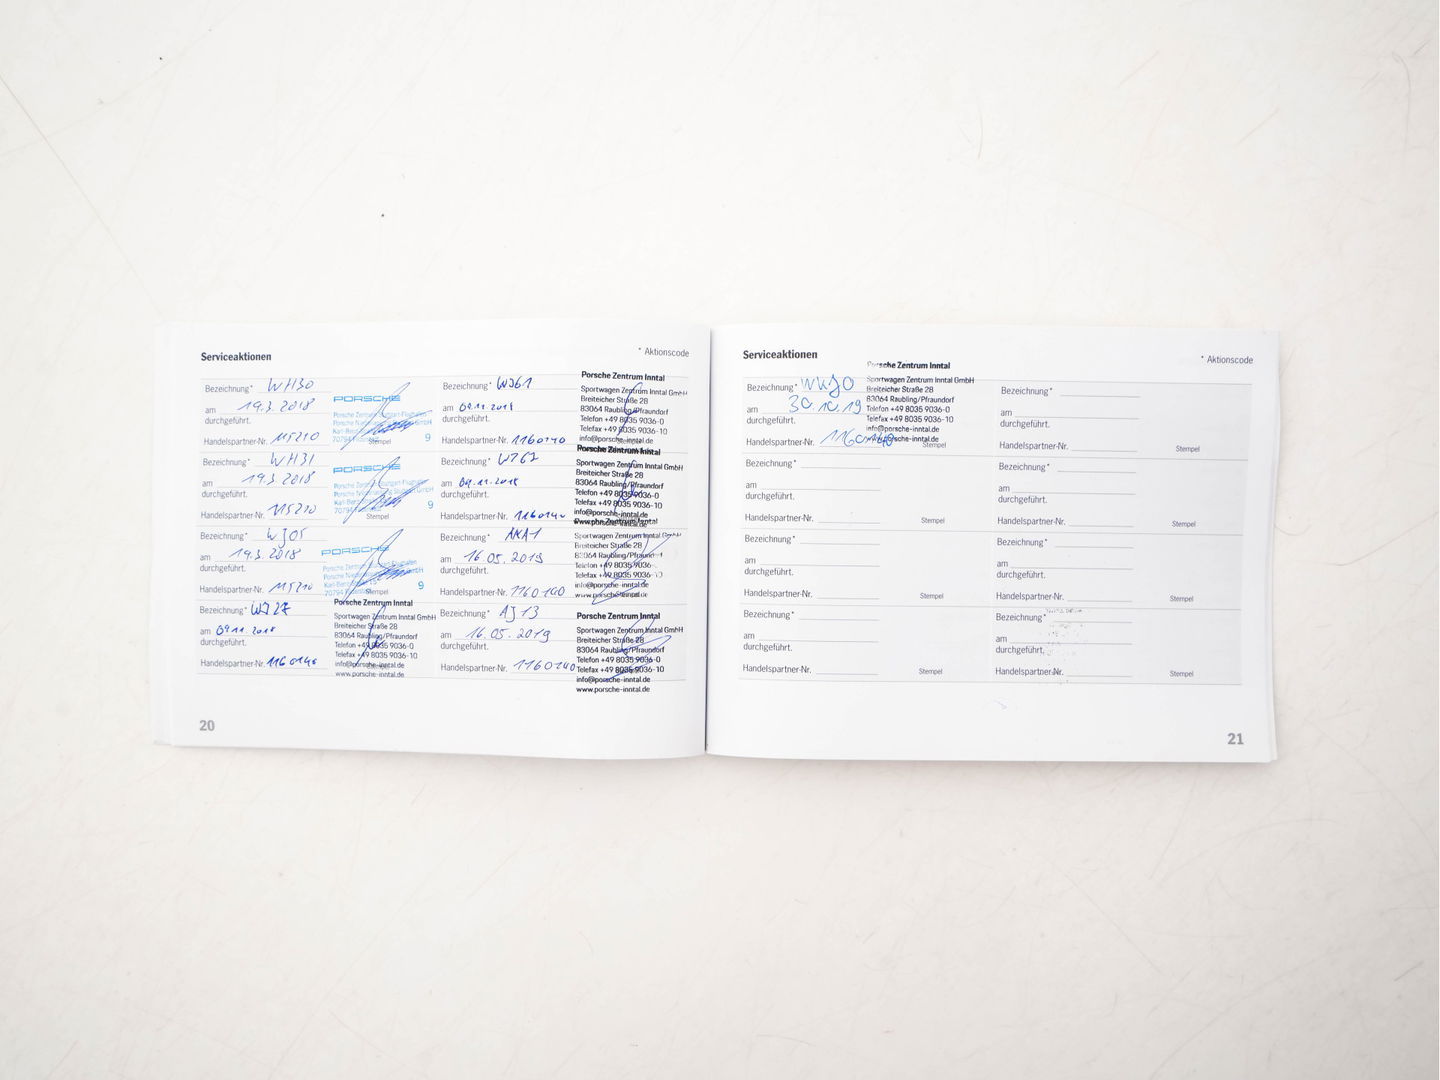 Serviceaktionen
* Aktionscode
Bezeichnung* WH30
am 19.3.2018
durchgeführt.
Handelspartner-Nr. 115210
PORSCHE
Stempel
9
Bezeichnung* WH31
am 19.3.2018
durchgeführt.
Handelspartner-Nr. 115210
PORSCHE
Stempel
9
Bezeichnung* WJ05
am 19.3.2018
durchgeführt.
Handelspartner-Nr. 115210
PORSCHE
Stempel
9
Bezeichnung* WJ27
am 09.11.2018
durchgeführt.
Handelspartner-Nr. 1160140
Porsche Zentrum Inntal
Sportwagen Zentrum Inntal GmbH
Breiteicher Straße 28
83064 Raubling/Pfraundorf
Telefon +49 8035 9036-0
Telefax +49 8035 9036-10
info@porsche-inntal.de
www.porsche-inntal.de
Bezeichnung* WJ61
am 09.11.2018
durchgeführt.
Handelspartner-Nr. 1160140
Porsche Zentrum Inntal
Sportwagen Zentrum Inntal GmbH
Breiteicher Straße 28
83064 Raubling/Pfraundorf
Telefon +49 8035 9036-0
Telefax +49 8035 9036-10
info@porsche-inntal.de
Bezeichnung* WJ62
am 09.11.2018
durchgeführt.
Handelspartner-Nr. 1160140
Porsche Zentrum Inntal
Sportwagen Zentrum Inntal GmbH
Breiteicher Straße 28
83064 Raubling/Pfraundorf
Telefon +49 8035 9036-0
Telefax +49 8035 9036-10
info@porsche-inntal.de
Bezeichnung* AKA1
am 16.05.2019
durchgeführt.
Handelspartner-Nr. 1160140
Sportwagen Zentrum Inntal GmbH
Breiteicher Straße 28
83064 Raubling/Pfraundorf
Telefon +49 8035 9036-
Telefax +49 8035 9036-10
info@porsche-inntal.de
www.porsche-inntal.de
Bezeichnung* AJ13
am 16.05.2019
durchgeführt.
Handelspartner-Nr. 1160140
Porsche Zentrum Inntal
Sportwagen Zentrum Inntal GmbH
Breiteicher Straße 28
83064 Raubling/Pfraundorf
Telefon +49 8035 9036-0
Telefax +49 8035 9036-10
info@porsche-inntal.de
www.porsche-inntal.de
20
Serviceaktionen
* Aktionscode
Bezeichnung*
am 30.10.19
durchgeführt.
Handelspartner-Nr.
Porsche Zentrum Inntal
Sportwagen Zentrum Inntal GmbH
Breiteicher Straße 28
83064 Raubling/Pfraundorf
Telefon +49 8035 9036-0
Telefax +49 8035 9036-10
info@porsche-inntal.de
Stempel
Bezeichnung*
am
durchgeführt.
Handelspartner-Nr.
Stempel
Bezeichnung*
am
durchgeführt.
Handelspartner-Nr.
Stempel
Bezeichnung*
am
durchgeführt.
Handelspartner-Nr.
Stempel
Bezeichnung*
am
durchgeführt.
Handelspartner-Nr.
Stempel
Bezeichnung*
am
durchgeführt.
Handelspartner-Nr.
Stempel
Bezeichnung*
am
durchgeführt.
Handelspartner-Nr.
Stempel
Bezeichnung*
am
durchgeführt.
Handelspartner-Nr.
Stempel
21